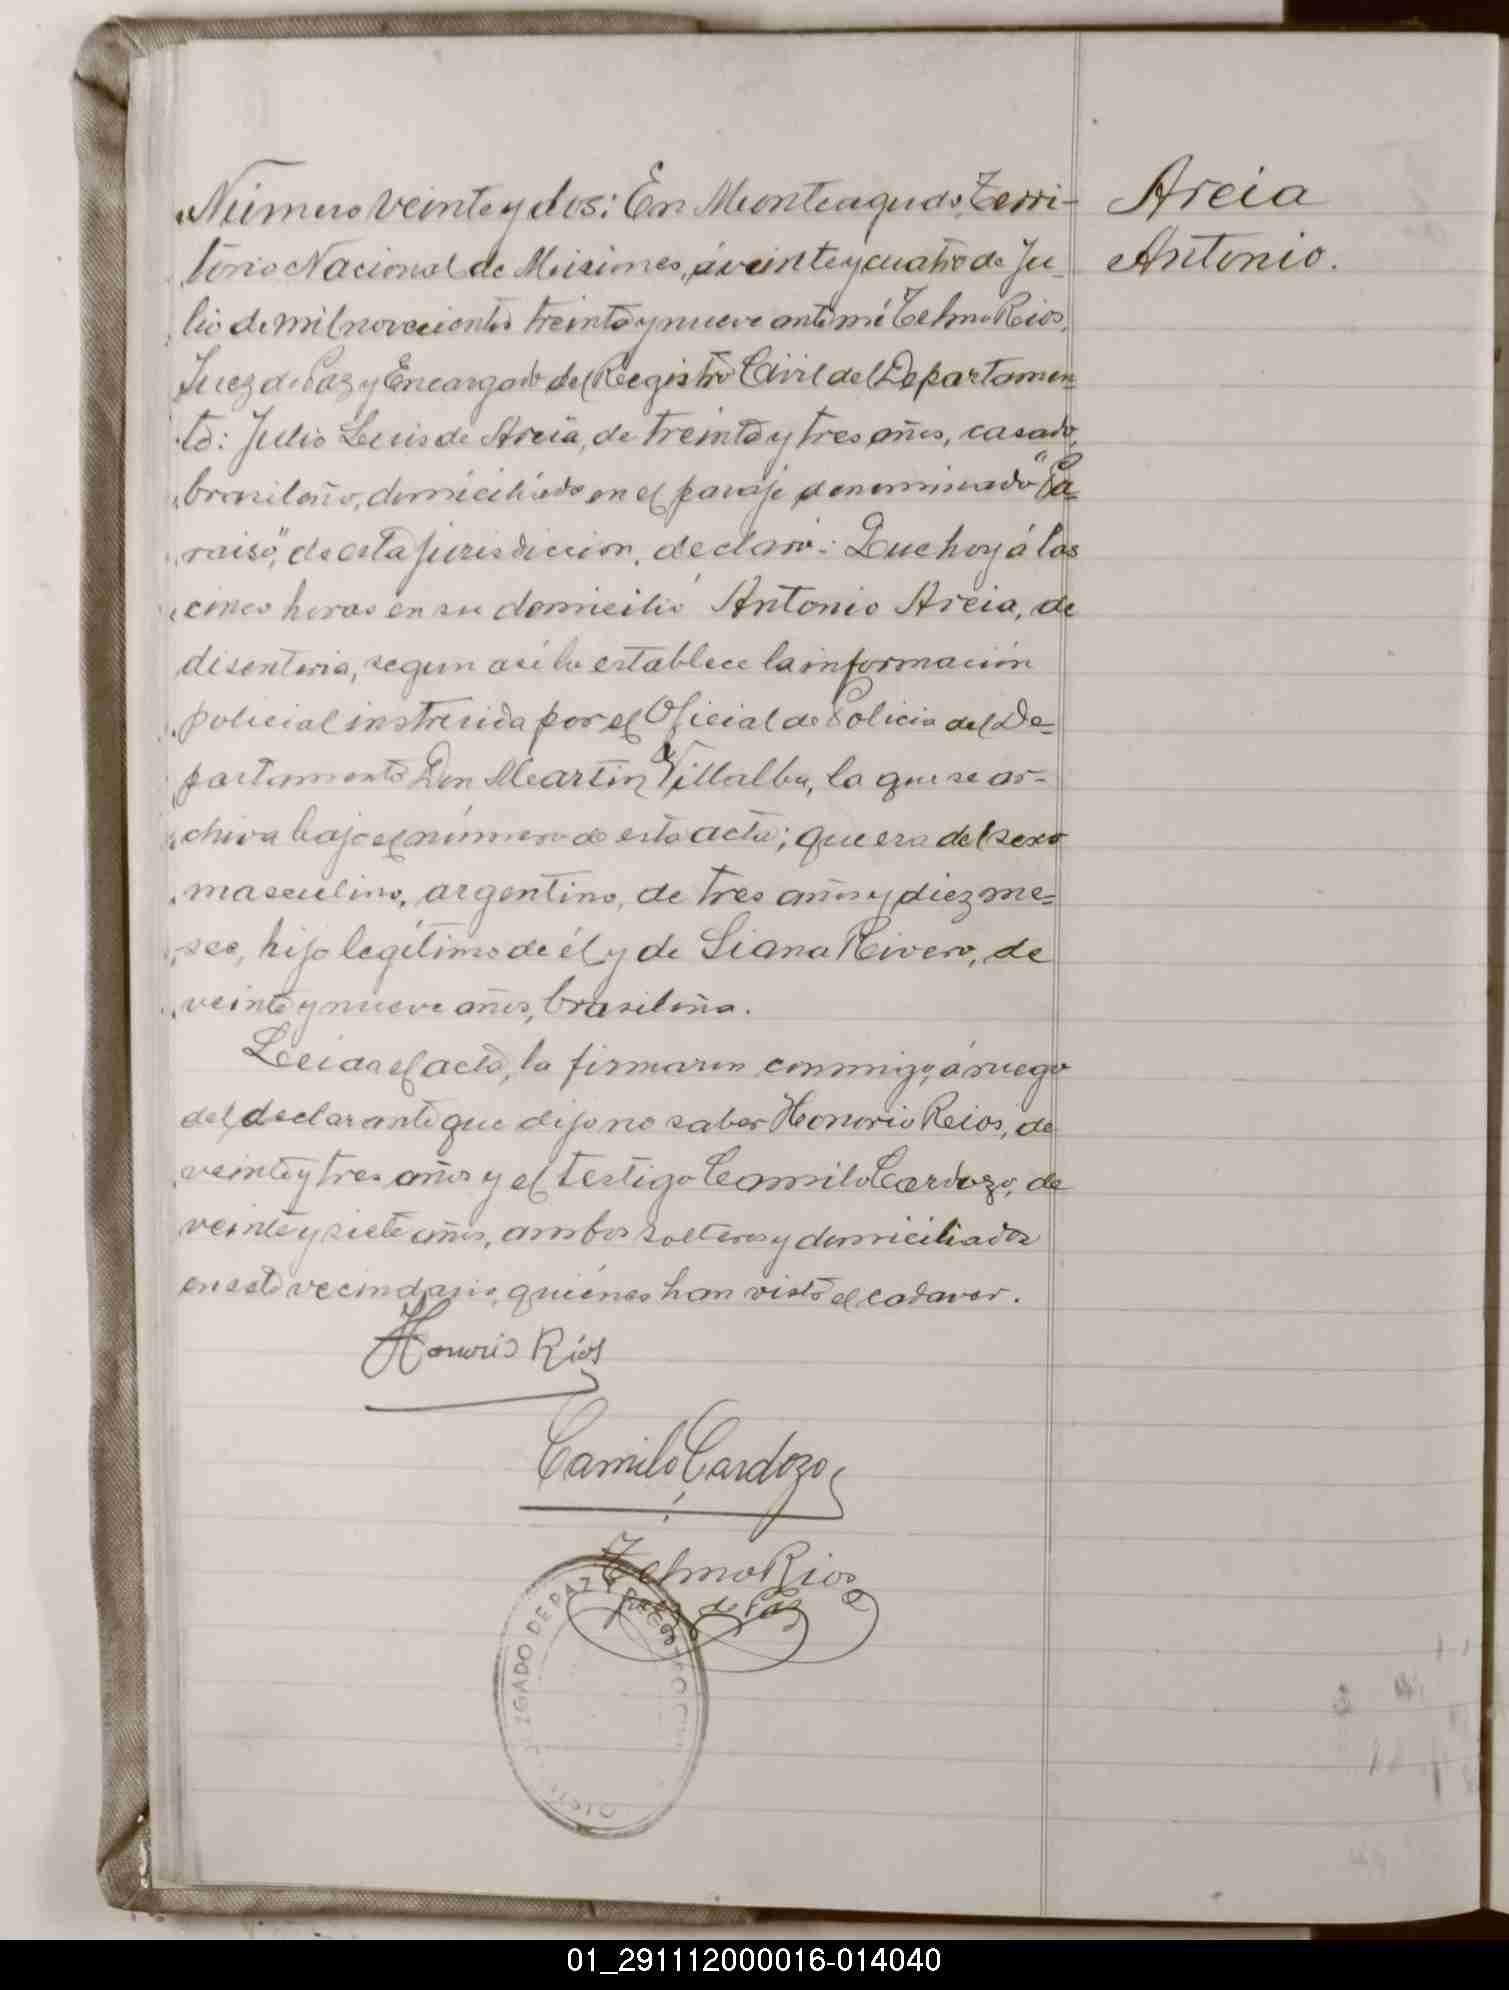 Número veinte y dos: En Monteagudo, Terri-
torio Nacional de Misiones, á veinte y cuatro de Ju-
lio de mil novecientos treinta y nueve ante mí Telmo Rios,
Juez de Paz y Encargado del Registro Civil del Departamen
to: Julio Luis de Areia, de treinta y tres años, casado,
brasileño, domiciliado en el paraje denominado "Pa=
raiso", de esta jurisdiccion, declaró: Que hoy á las
cinco horas en su domicilio Antonio Areia, de
disenteria, segun así lo establece la información
policial instruida por el Oficial de Policia del De=
partamento Don Martin Villalba, la que se ar=
chiva bajo el número de esta acta; que era del sexo
masculino, argentino, de tres años y diez me=
ses, hijo legítimo de él y de Liana Rivero, de
veinte y nueve años, brasileña.
Leida el acta, la firmaron conmigo, á ruego
del declarante que dijo no saber Honorio Rios, de
veinte y tres años y el testigo Camilo Cardozo, de
veinte y siete años, ambos solteros y domiciliados
en este vecindario, quiénes han visto el cadaver.
Honorio Ríos
Camilo Cardozo
Telmo Rios
Juez de Paz
JUZGADO DE PAZ Y REGISTRO CIVIL
Areia
Antonio.
01_291112000016-014040